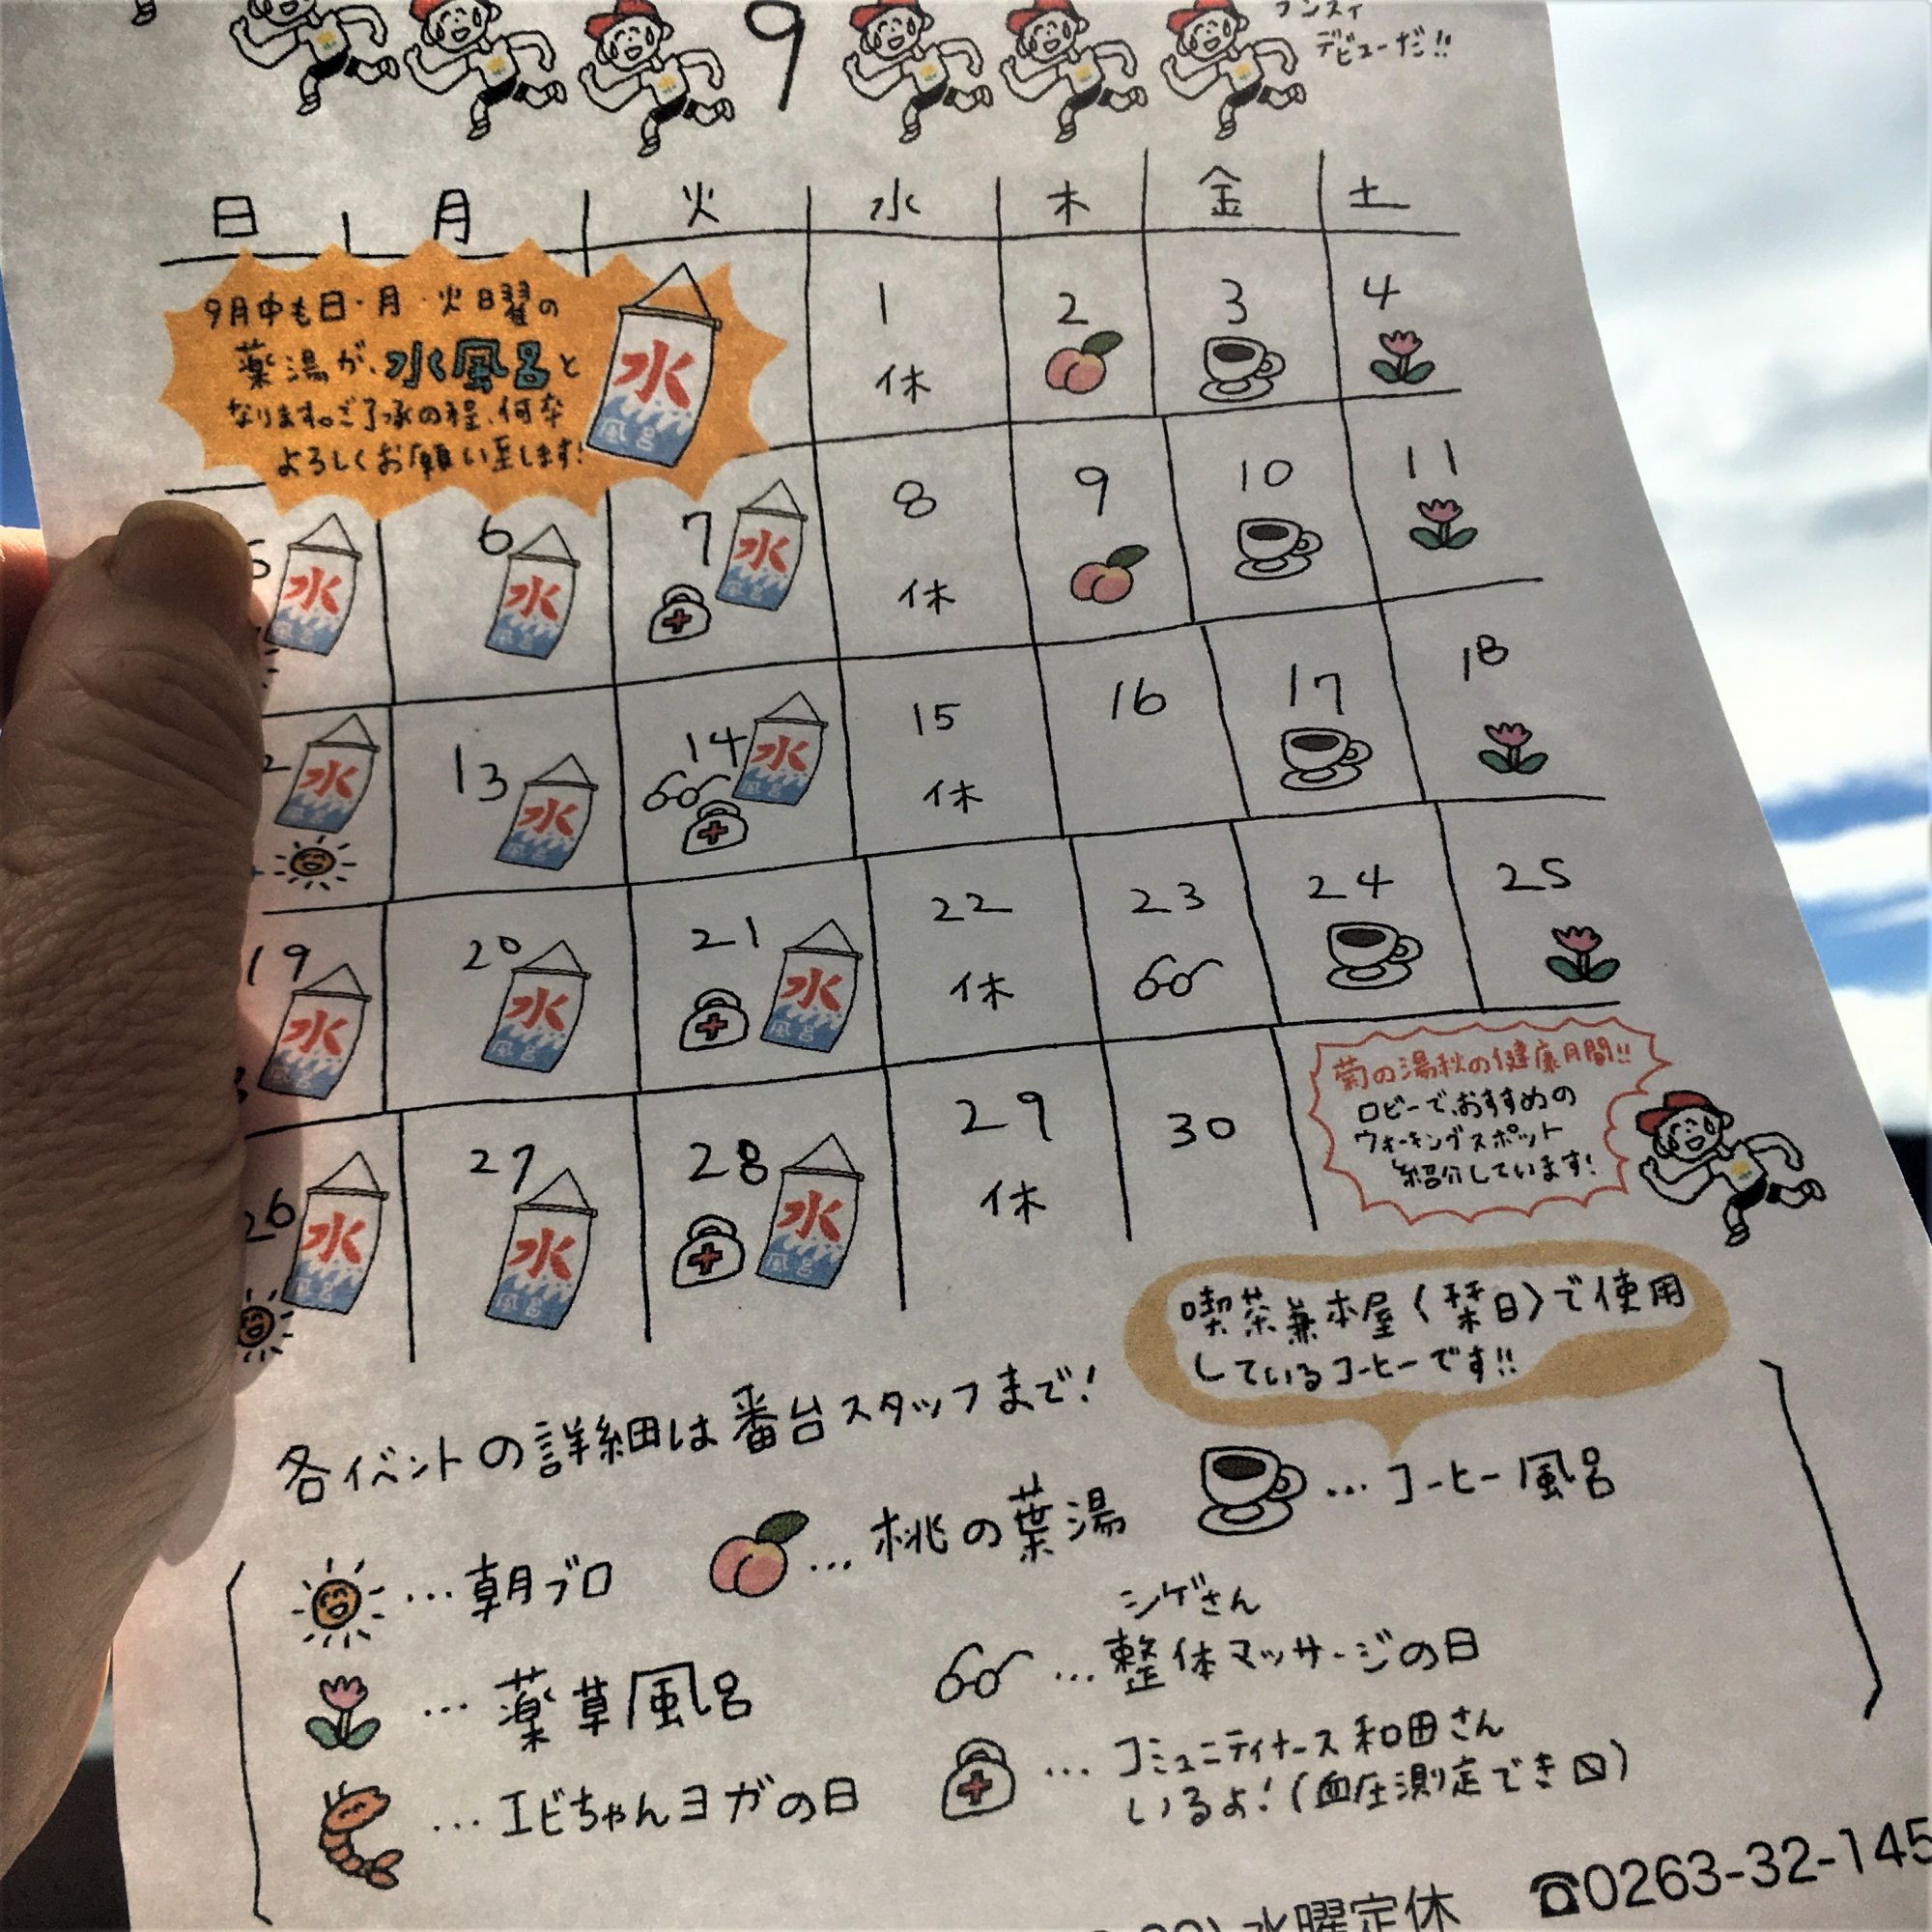 9
デビューだ!!
日 月 火 水 木 金 土
9月中も日・月・火曜の
薬湯が、水風呂と
なります。ご了承の程、何卒
よろしくお願い至します!
水
風呂
1 2 3 4
休
6 7 8 9 10 11
水 水 水
風呂 風呂 風呂
休
13 14 15 16 17 18
水 水 水
風呂 風呂 風呂
休
19 20 21 22 23 24 25
水 水 水
風呂 風呂 風呂
休
26 27 28 29 30
水 水 水
風呂 風呂 風呂
休
菊の湯秋の健康月間!!
ロビーで、おすすめの
ウォーキングスポット
紹介しています!
喫茶兼本屋〈栞日〉で使用
しているコーヒーです!!
各イベントの詳細は番台スタッフまで!
…朝ブロ
…桃の葉湯
…コーヒー風呂
…薬草風呂
シゲさん
…整体マッサージの日
…エビちゃんヨガの日
…コミュニティナース和田さん
いるよ!(血圧測定でき〼)
水曜定休
☎0263-32-145